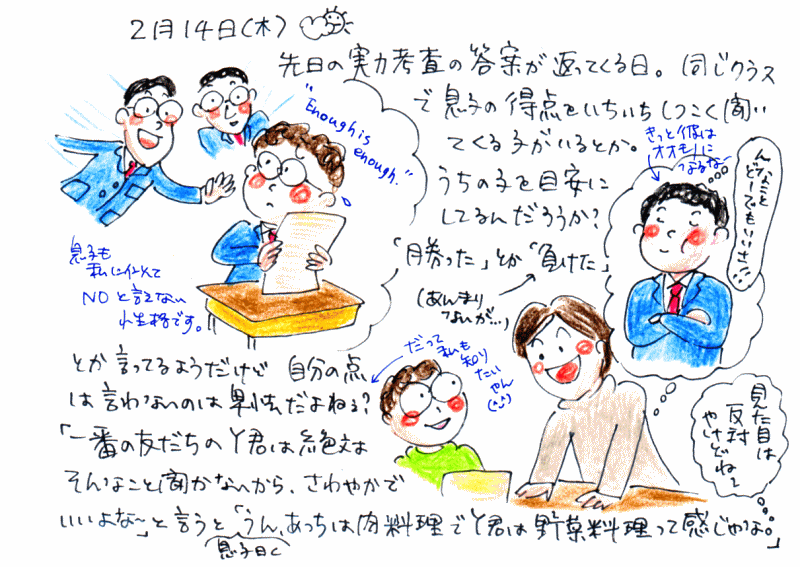 2月14日(木)
先日の実力考査の答案が返ってくる日。同じクラス
で息子の得点をいちいちしつこく聞い
てくる子がいるとか。
うちの子を目安に
してるんだろうか?
「勝った」とか「負けた」
(あんまり
ないが…)
とか言ってるようだけど 自分の点
は言わないのは卑怯だよねぇ?
「一番の友だちのY君は絶対は
そんなこと聞かないから、さわやかで
いいよな〜」と言うと「うん、あっちは肉料理でY君は野菜料理って感じかな。」
息子曰く
"Enough is
enough."
息子も
私に似て
NOと言えない
性格です。
きっと彼は
オオモノに
なるな〜
んなことど〜でもいいさ!!
だって
私も
知り
たい
やん
(^^)
見た目は
反対
やけどね〜